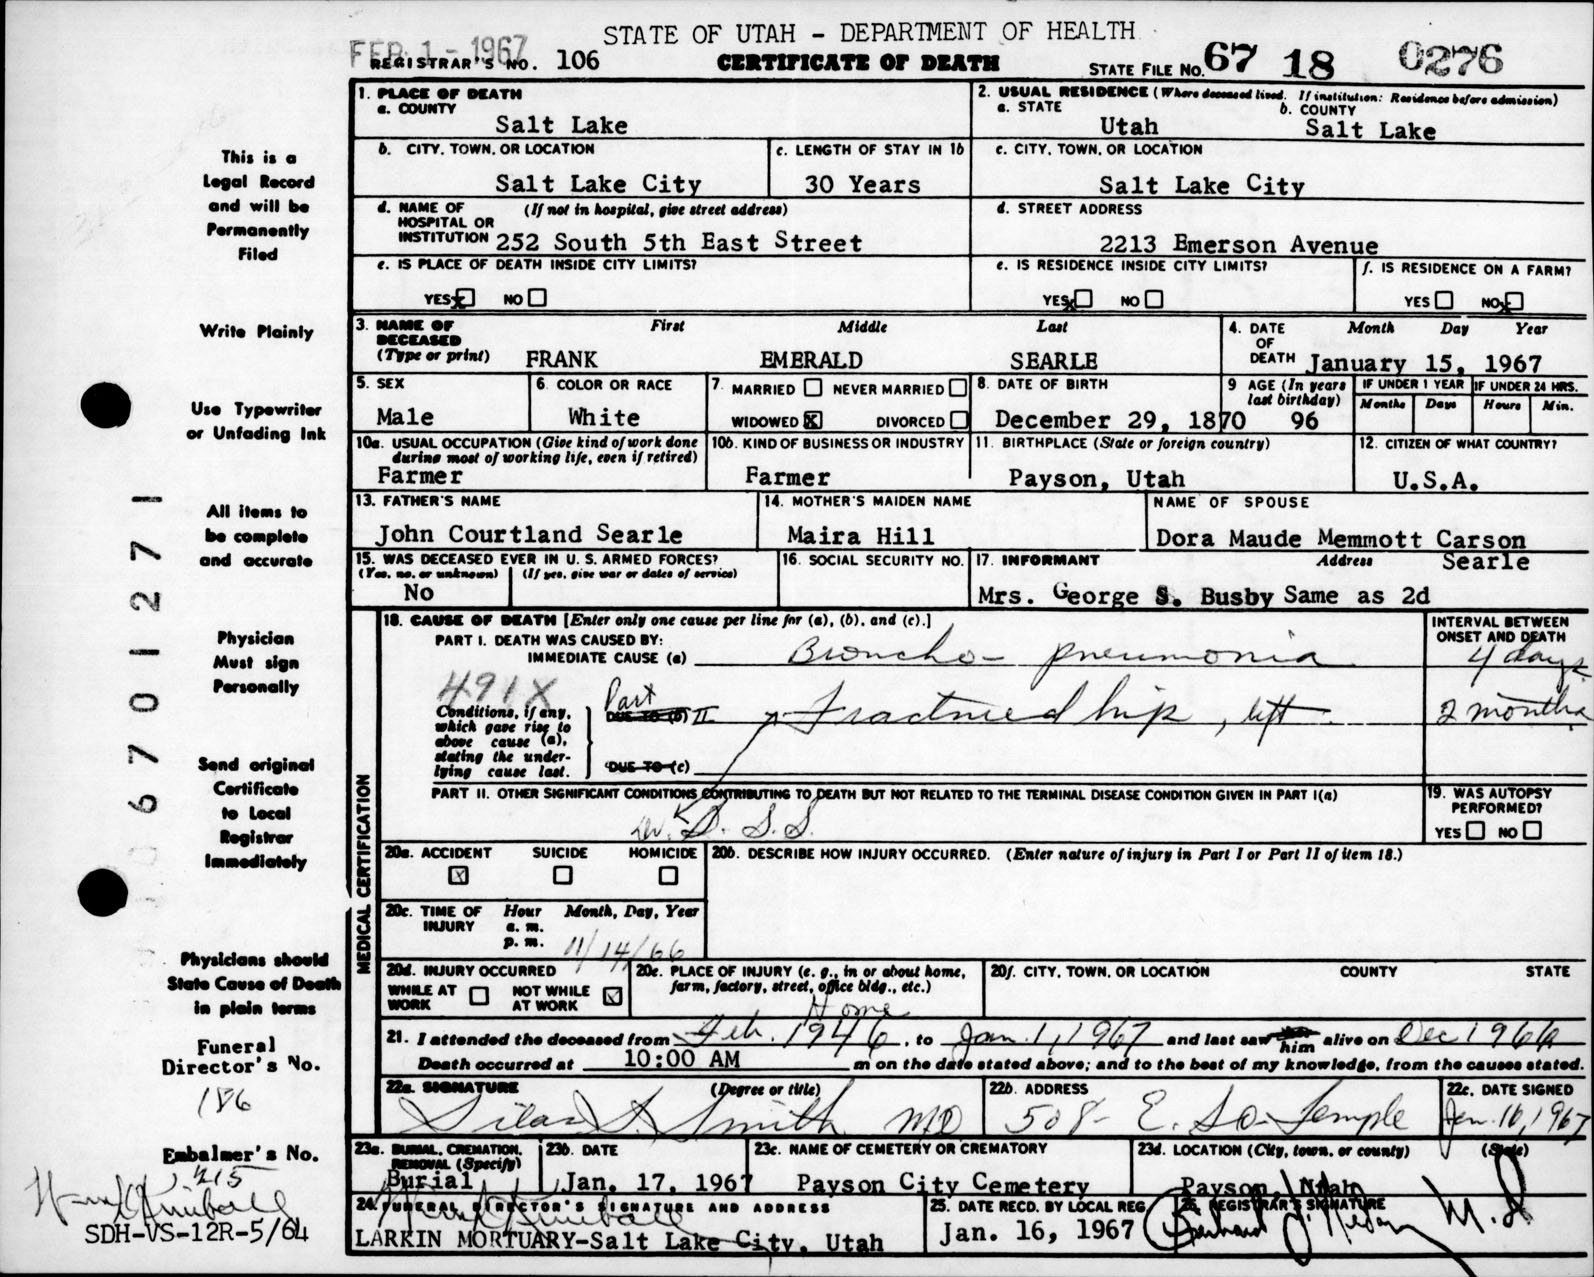 STATE OF UTAH - DEPARTMENT OF HEALTH
FEB 1 - 1967
REGISTRAR'S NO. 106
CERTIFICATE OF DEATH
STATE FILE NO. 67 18 0276
1. PLACE OF DEATH
a. COUNTY
Salt Lake
2. USUAL RESIDENCE (Where deceased lived. If institution: Residence before admission)
a. STATE
Utah
b. COUNTY
Salt Lake
b. CITY, TOWN, OR LOCATION
Salt Lake City
c. LENGTH OF STAY IN 1b
30 Years
c. CITY, TOWN, OR LOCATION
Salt Lake City
d. NAME OF HOSPITAL OR INSTITUTION (If not in hospital, give street address)
252 South 5th East Street
d. STREET ADDRESS
2213 Emerson Avenue
e. IS PLACE OF DEATH INSIDE CITY LIMITS?
YES x NO
e. IS RESIDENCE INSIDE CITY LIMITS?
YES x NO
f. IS RESIDENCE ON A FARM?
YES NO x
3. NAME OF DECEASED (Type or print)
First Middle Last
FRANK EMERALD SEARLE
4. DATE OF DEATH
Month Day Year
January 15, 1967
5. SEX
Male
6. COLOR OR RACE
White
7. MARRIED NEVER MARRIED
WIDOWED X DIVORCED
8. DATE OF BIRTH
December 29, 1870
9 AGE (In years last birthday)
96
IF UNDER 1 YEAR
Months Days
IF UNDER 24 HRS.
Hours Min.
10a. USUAL OCCUPATION (Give kind of work done during most of working life, even if retired)
Farmer
10b. KIND OF BUSINESS OR INDUSTRY
Farmer
11. BIRTHPLACE (State or foreign country)
Payson, Utah
12. CITIZEN OF WHAT COUNTRY?
U.S.A.
13. FATHER'S NAME
John Courtland Searle
14. MOTHER'S MAIDEN NAME
Maira Hill
NAME OF SPOUSE
Dora Maude Memmott Carson
Searle
15. WAS DECEASED EVER IN U. S. ARMED FORCES?
(Yes, no, or unknown) (If yes, give war or dates of service)
No
16. SOCIAL SECURITY NO.
17. INFORMANT Address
Mrs. George S. Busby Same as 2d
MEDICAL CERTIFICATION
18. CAUSE OF DEATH [Enter only one cause per line for (a), (b), and (c).]
INTERVAL BETWEEN ONSET AND DEATH
PART I. DEATH WAS CAUSED BY:
IMMEDIATE CAUSE (a) Broncho-pneumonia
4 days
491X
Conditions, if any, which gave rise to above cause (a), stating the underlying cause last.
Part
DUE TO (b) II Fractured hip, left
2 months
DUE TO (c)
PART II. OTHER SIGNIFICANT CONDITIONS CONTRIBUTING TO DEATH BUT NOT RELATED TO THE TERMINAL DISEASE CONDITION GIVEN IN PART I(a)
S. S.
19. WAS AUTOPSY PERFORMED?
YES NO
20a. ACCIDENT SUICIDE HOMICIDE
20b. DESCRIBE HOW INJURY OCCURRED. (Enter nature of injury in Part I or Part II of item 18.)
20c. TIME OF INJURY Hour Month, Day, Year
a. m.
p. m. 11/14/66
20d. INJURY OCCURRED
WHILE AT WORK NOT WHILE AT WORK
20e. PLACE OF INJURY (e. g., in or about home, farm, factory, street, office bldg., etc.)
Home
20f. CITY, TOWN, OR LOCATION COUNTY STATE
21. I attended the deceased from Feb. 1946, to Jan. 1, 1967 and last saw him alive on Dec 1966
Death occurred at 10:00 AM m on the date stated above; and to the best of my knowledge, from the causes stated.
22a. SIGNATURE (Degree or title)
Silas S. Smith MD
22b. ADDRESS
508- E. So-Temple
22c. DATE SIGNED
Jan. 16, 1967
23a. BURIAL, CREMATION, REMOVAL (Specify)
Burial
23b. DATE
Jan. 17, 1967
23c. NAME OF CEMETERY OR CREMATORY
Payson City Cemetery
23d. LOCATION (City, town, or county) (State)
Payson, Utah
24. FUNERAL DIRECTOR'S SIGNATURE AND ADDRESS
LARKIN MORTUARY-Salt Lake City, Utah
25. DATE RECD. BY LOCAL REG.
Jan. 16, 1967
26. REGISTRAR'S SIGNATURE
M.D
This is a
Legal Record
and will be
Permanently
Filed
Write Plainly
Use Typewriter
or Unfading Ink
All items to
be complete
and accurate
Physician
Must sign
Personally
Send original
Certificate
to Local
Registrar
Immediately
Physicians should
State Cause of Death
in plain terms
Funeral
Director's No.
186
Embalmer's No.
215
SDH-VS-12R-5/64
6701271